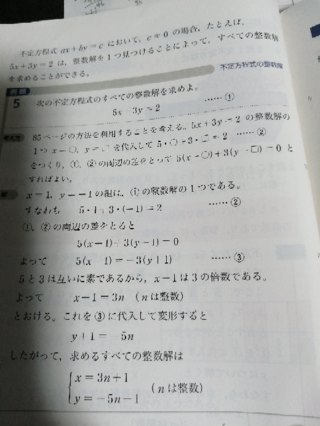 不定方程式 ax+by=c において、c≠0 の場合、たとえば、
5x+3y=2 は、整数解を1つ見つけることによって、すべての整数解
を求めることができる。
不定方程式の整数解
例題
5 次の不定方程式のすべての整数解を求めよ。
5x+3y=2 ……①
考え方 85ページの方法を利用することを考える。5x+3y=2 の整数解の
1つ x=○, y=○ を代入して 5・○+3・○=2 ……②
をつくり、①、②の両辺の差をとって 5(x-○)+3(y-○)=0 と
すればよい。
解 x=1, y=-1 の組は、①の整数解の1つである。
すなわち 5・1+3・(-1)=2 ……②
①、②の両辺の差をとると
5(x-1)+3(y+1)=0
よって 5(x-1)=-3(y+1) ……③
5と3は互いに素であるから、x-1は3の倍数である。
よって x-1=3n (nは整数)
とおける。これを③に代入して変形すると
y+1=-5n
したがって、求めるすべての整数解は
x=3n+1
y=-5n-1 (nは整数)